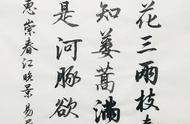 花三兩枝春
知蔞蒿滿
是河豚欲
惠崇春江晚景易